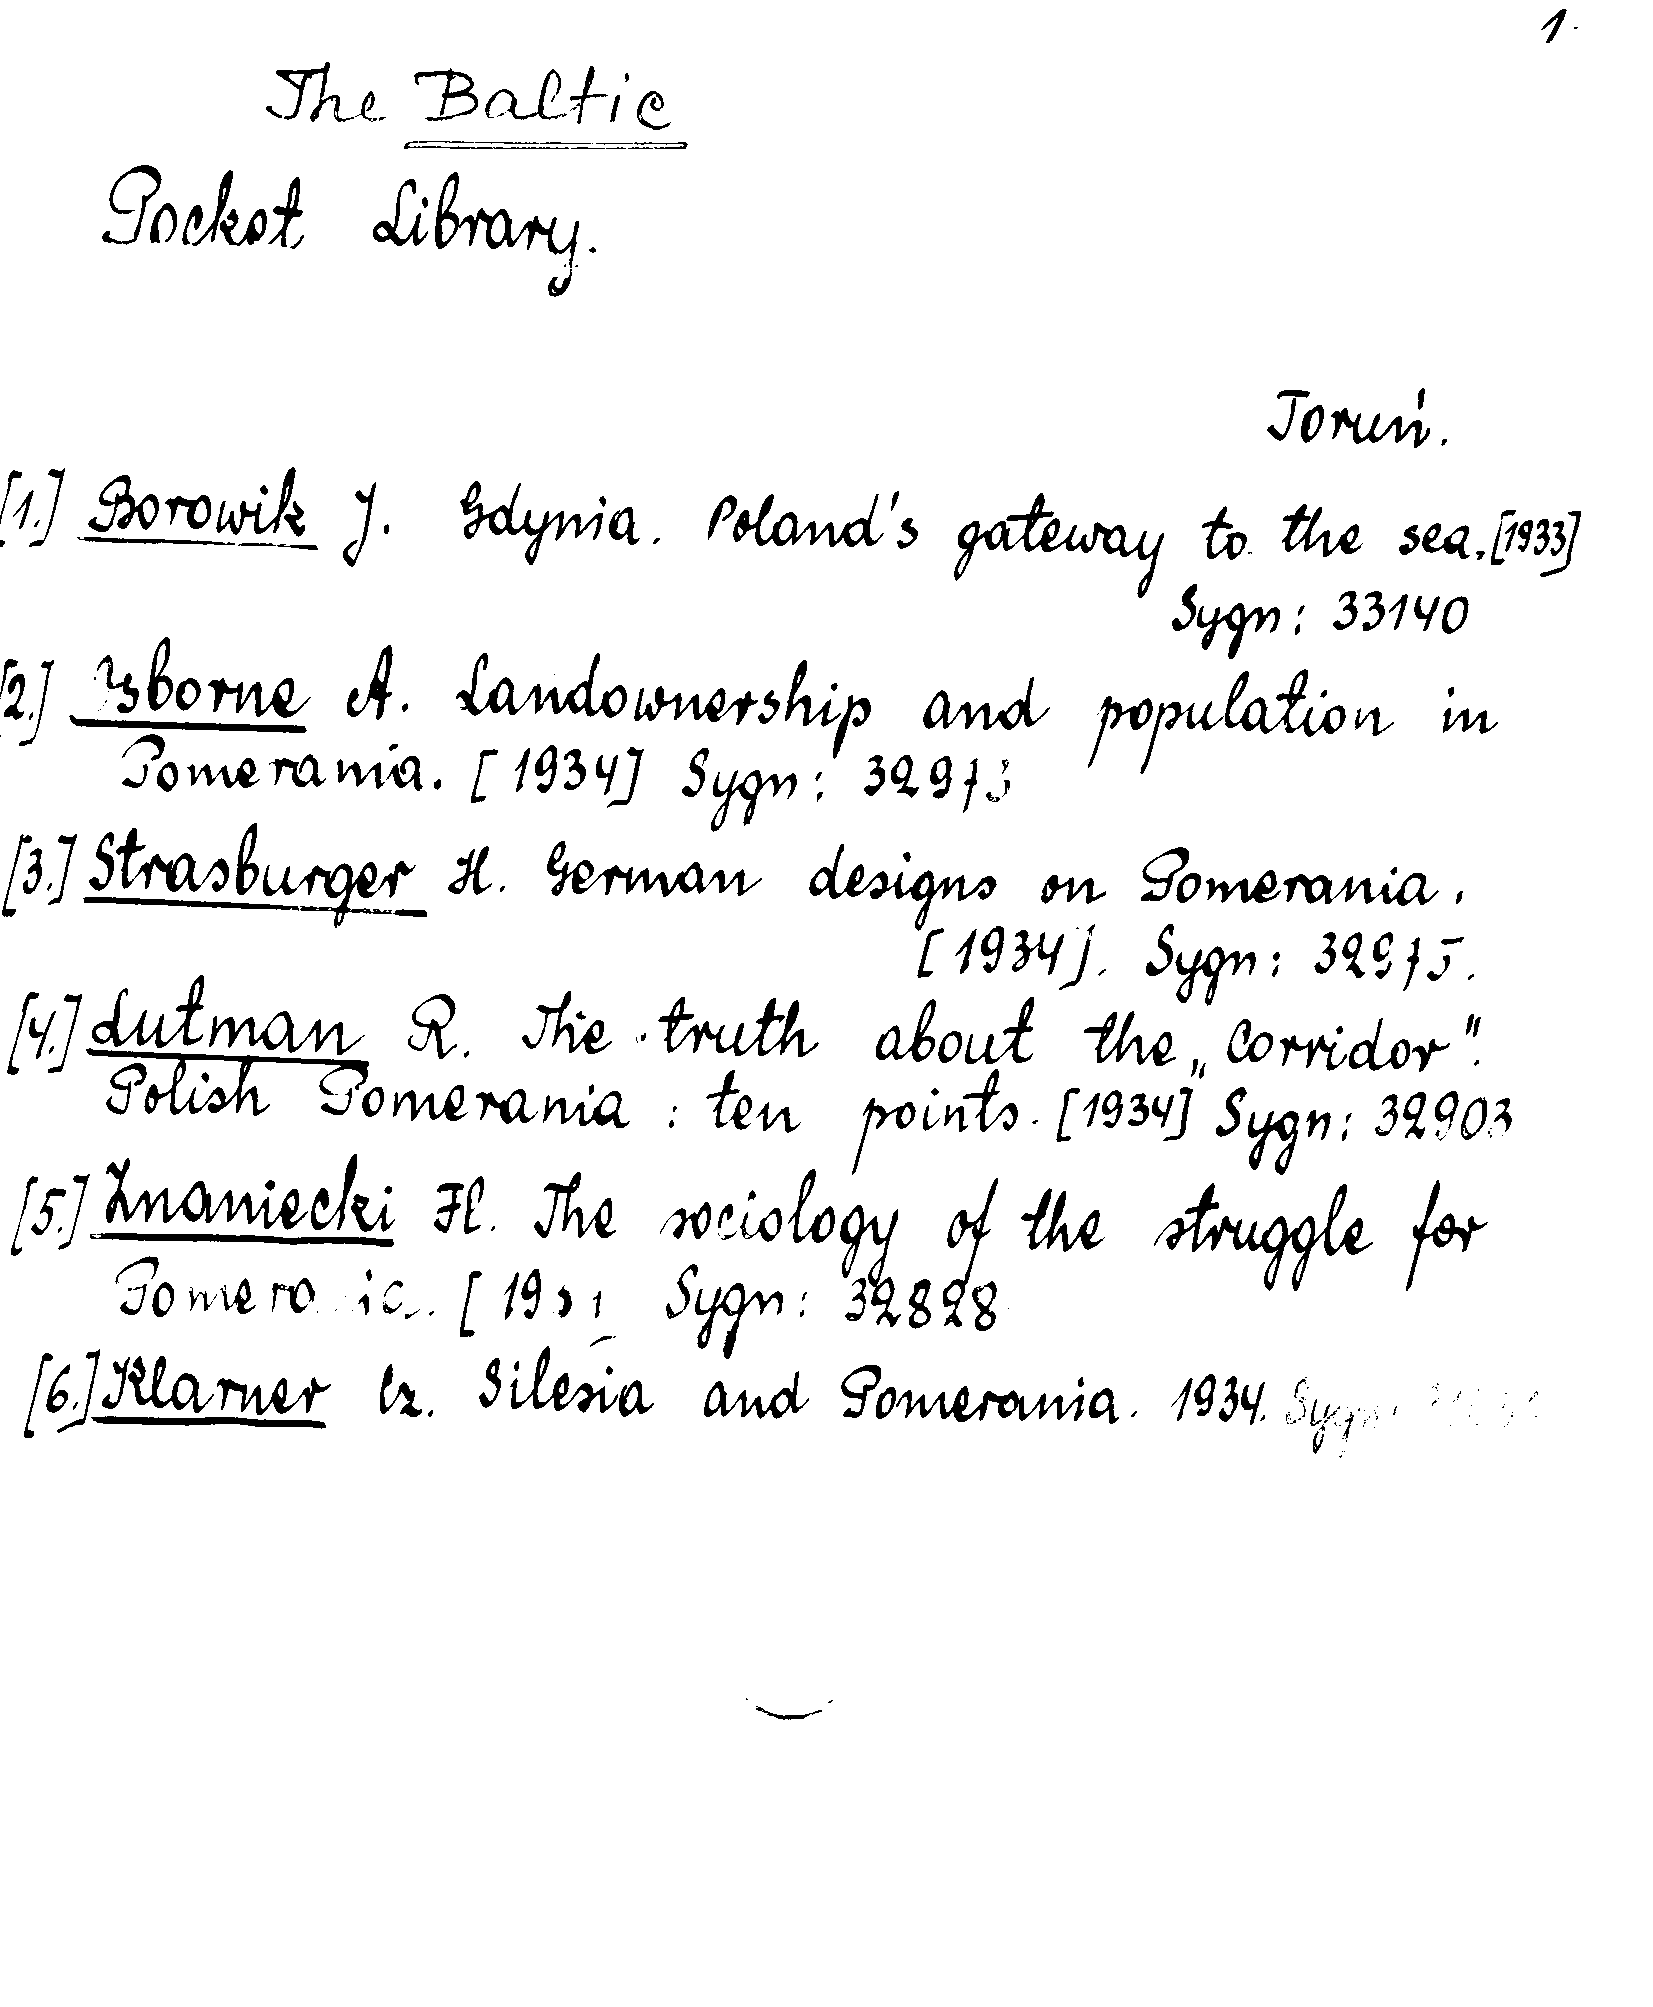 1.
The Baltic
Pocket Library.
Toruń.
[1.] Borowik J. Gdynia. Poland's gateway to the sea. [1933]
Sygn: 33140
[2.] A. Landownership and population in
Pomerania. [1934] Sygn:
[3.] Strasburger H. German designs on Pomerania.
[1934]. Sygn: 32975.
[4.] Lutman R. The truth about the „Corridor".
Polish Pomerania : ten points. [1934] Sygn: 32903
[5.] Znaniecki Fl. The sociology of the struggle for
Sygn: 32828
[6.] Klarner Cz. Silesia and Pomerania. 1934. Sygn: